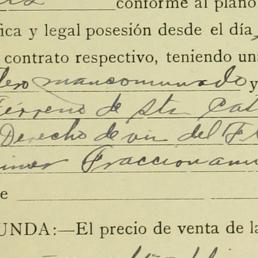 conforme al plano
fica y legal posesión desde el día
contrato respectivo, teniendo una
dero mancomunado y
Terreno de Sta Cat
Derecho de via del F
imer Fraccionami
e
UNDA:—El precio de venta de la